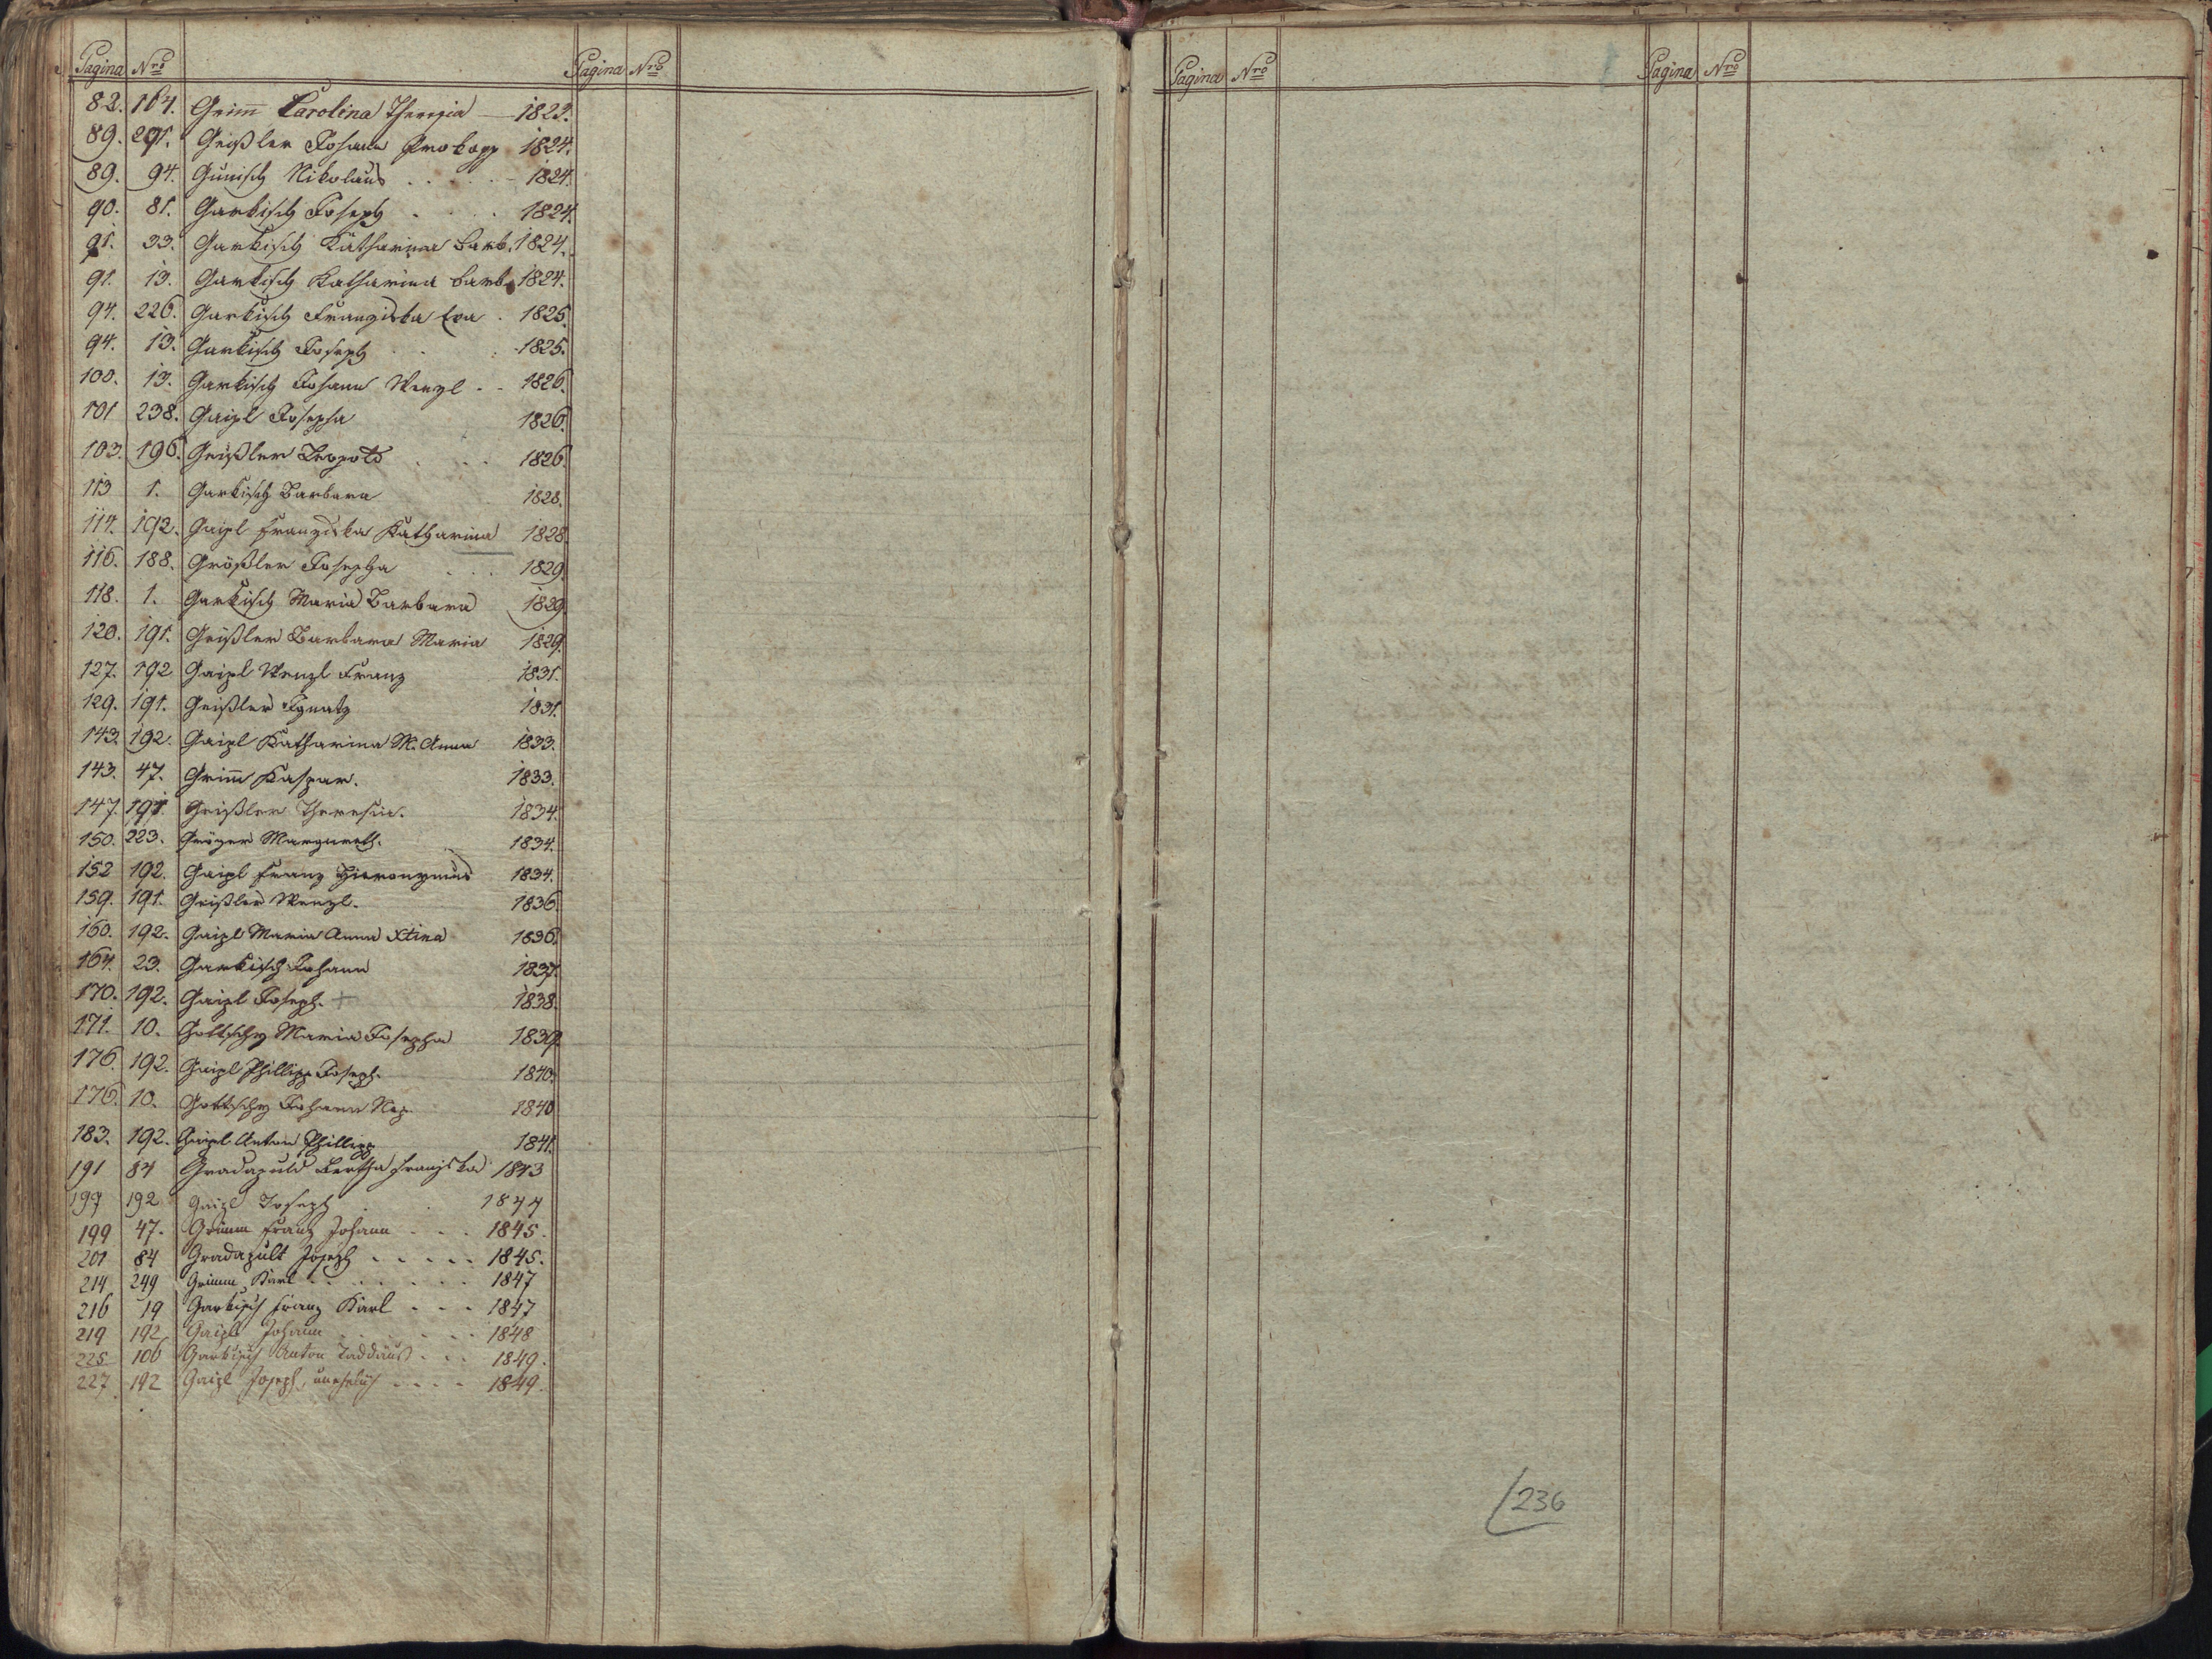 Pagina Nro Pagina Nro
82. 164. Grim̄ Carolina Theresia — 1823.
89. 291. Geißler Johann Prokopp 1824.
89. 94. Nikolaus . . . . 1824.
90. 81. Garkisch Joseph . . . 1824.
91. 33. Garkisch Katharina Barb. 1824.
91. 13. Garkisch Katharina Barb. 1824.
94. 226. Garkisch Franziska Eva . 1825.
94. 13. Garkisch Joseph . . . 1825.
100. 13. Garkisch Johann Wenzl . . 1826.
101 238. Gaipl Josepha 1826.
103. 196. Geißler Leopold . . . 1826.
113 1. Garkisch Barbara 1828.
114. 192. Gaipl Franziska Katharina 1828.
116. 188. Größler Josepha . . . 1829.
118. 1. Garkisch Maria Barbara 1829.
120. 191. Geißler Barbara Maria 1829.
127. 192 Gaipl Wenzl Franz 1831.
129. 191. Geißler Ignatz 1831.
143. 192. Gaipl Katharina M. Anna 1833.
143. 47. Grim̄ Kaspar. 1833.
147. 191. Geißler Theresia. 1834.
150. 223. Margareth. 1834.
152 192. Gaipl Franz Hieronymus 1834.
159. 191. Geißler Wenzl. 1836.
160. 192. Gaipl Maria Anna Xtina 1836.
164. 23. Garkisch Johann 1837.
170. 192. Gaipl Joseph. + 1838.
171. 10. Gottschy Maria Josepha 1839.
176. 192. Gaipl Phillipp Joseph. 1840.
176. 10. Gottschy Johann Nep. 1840
183. 192. Gaipl Anton Phillipp 1841.
191 84 Gradapuld Bertha Franziska 1843
197 192 Gaipl Joseph . . 1844
199 47. Grimm Franz Johann . . . 1845.
201 84 Gradapult Joseph . . . . . 1845.
214 249 Grimm Karl . . . . . . . 1847
216 19 Garkisch Franz Karl . . . 1847
219 192 Gaipl Johann . . . . . 1848
225 106 Garkisch Anton Taddäus . . . 1849.
227 192 Gaipl Joseph, unehelich . . . . 1849.
Pagina Nro Pagina Nro
236